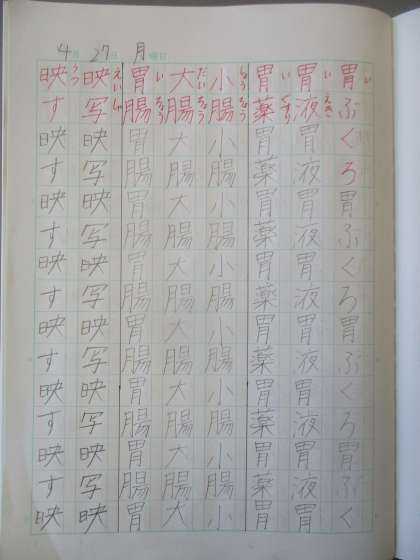 4月27日月曜日
胃ぶくろ胃ぶくろ胃ぶくろ胃ぶく
い
胃液胃液胃液胃液胃液胃液胃液胃
いえき
胃薬胃薬胃薬胃薬胃薬胃薬胃薬胃
いぐすり
小腸小腸小腸小腸小腸小腸小腸小
しょうちょう
大腸大腸大腸大腸大腸大腸大腸大
だいちょう
胃腸胃腸胃腸胃腸胃腸胃腸胃腸胃
いちょう
映写映写映写映写映写映写映写映
えいしゃ
映す映す映す映す映す映す映す映
うつ